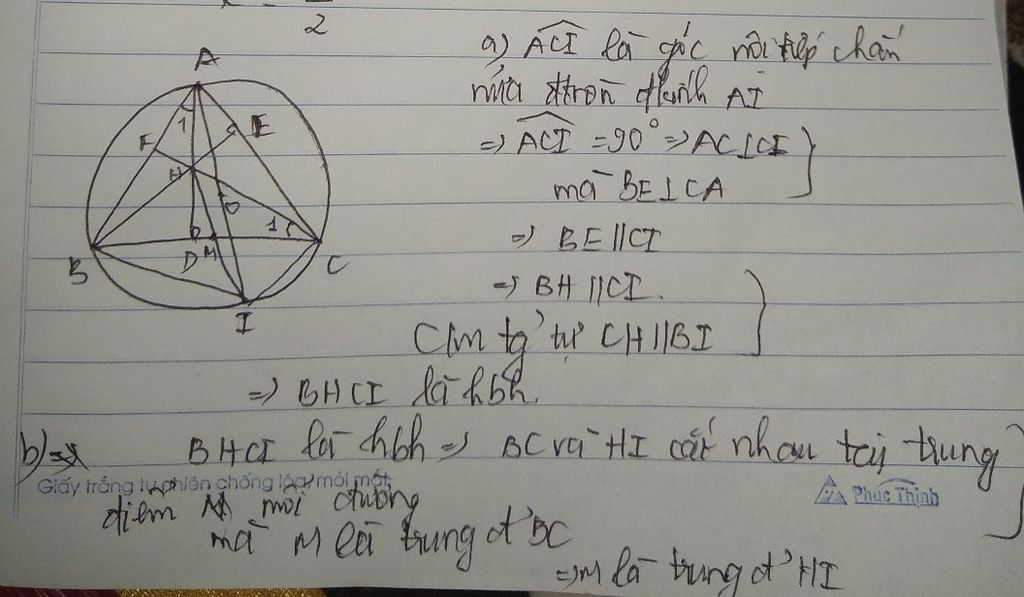 2
a) ACI là góc nội tiếp chắn
nửa đtròn đkính AI
=> ACI = 90° => AC⊥CI
mà BE⊥CA
=> BE//CI
=> BH//CI.
C/m tg² tự CH//BI
=> BHCI là hbh.
b) BHCI là hbh => BC và HI cắt nhau tại trung
Giấy trắng tự nhiên chống lóa, mỏi mắt
Phúc Thịnh
điểm mỗi đường
mà M là trung đ² BC
=> M là trung đ² HI
A
F
1
E
H
O
1
B
D
M
C
I